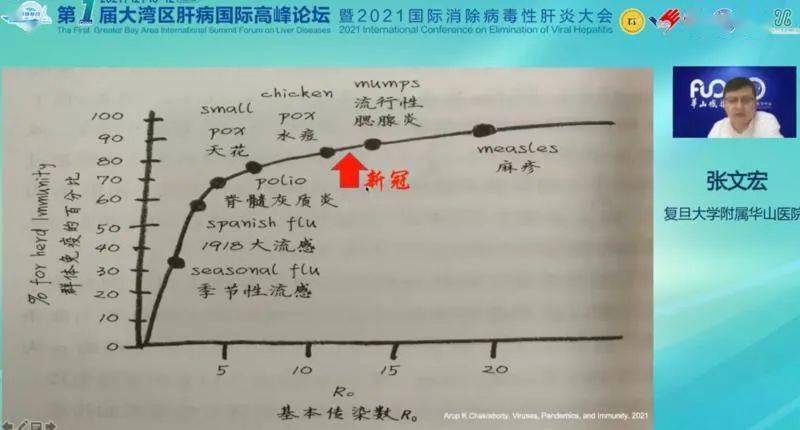 第1届大湾区肝病国际高峰论坛 暨2021国际消除病毒性肝炎大会
The First Greater Bay Area International Summit Forum on Liver Diseases 2021 International Conference on Elimination of Viral Hepatitis
% for herd Immunity
群体免疫的百分比
100
90
80
70
60
50
40
30
20
10
0
small
pox
天花
chicken
pox
水痘
mumps
流行性
腮腺炎
measles
麻疹
新冠
polio
脊髓灰质炎
spanish flu
1918大流感
seasonal flu
季节性流感
5
10
15
20
R₀
基本传染数R₀
Arup K Chakraborty. Viruses, Pandemics, and Immunity. 2021
张文宏
复旦大学附属华山医院